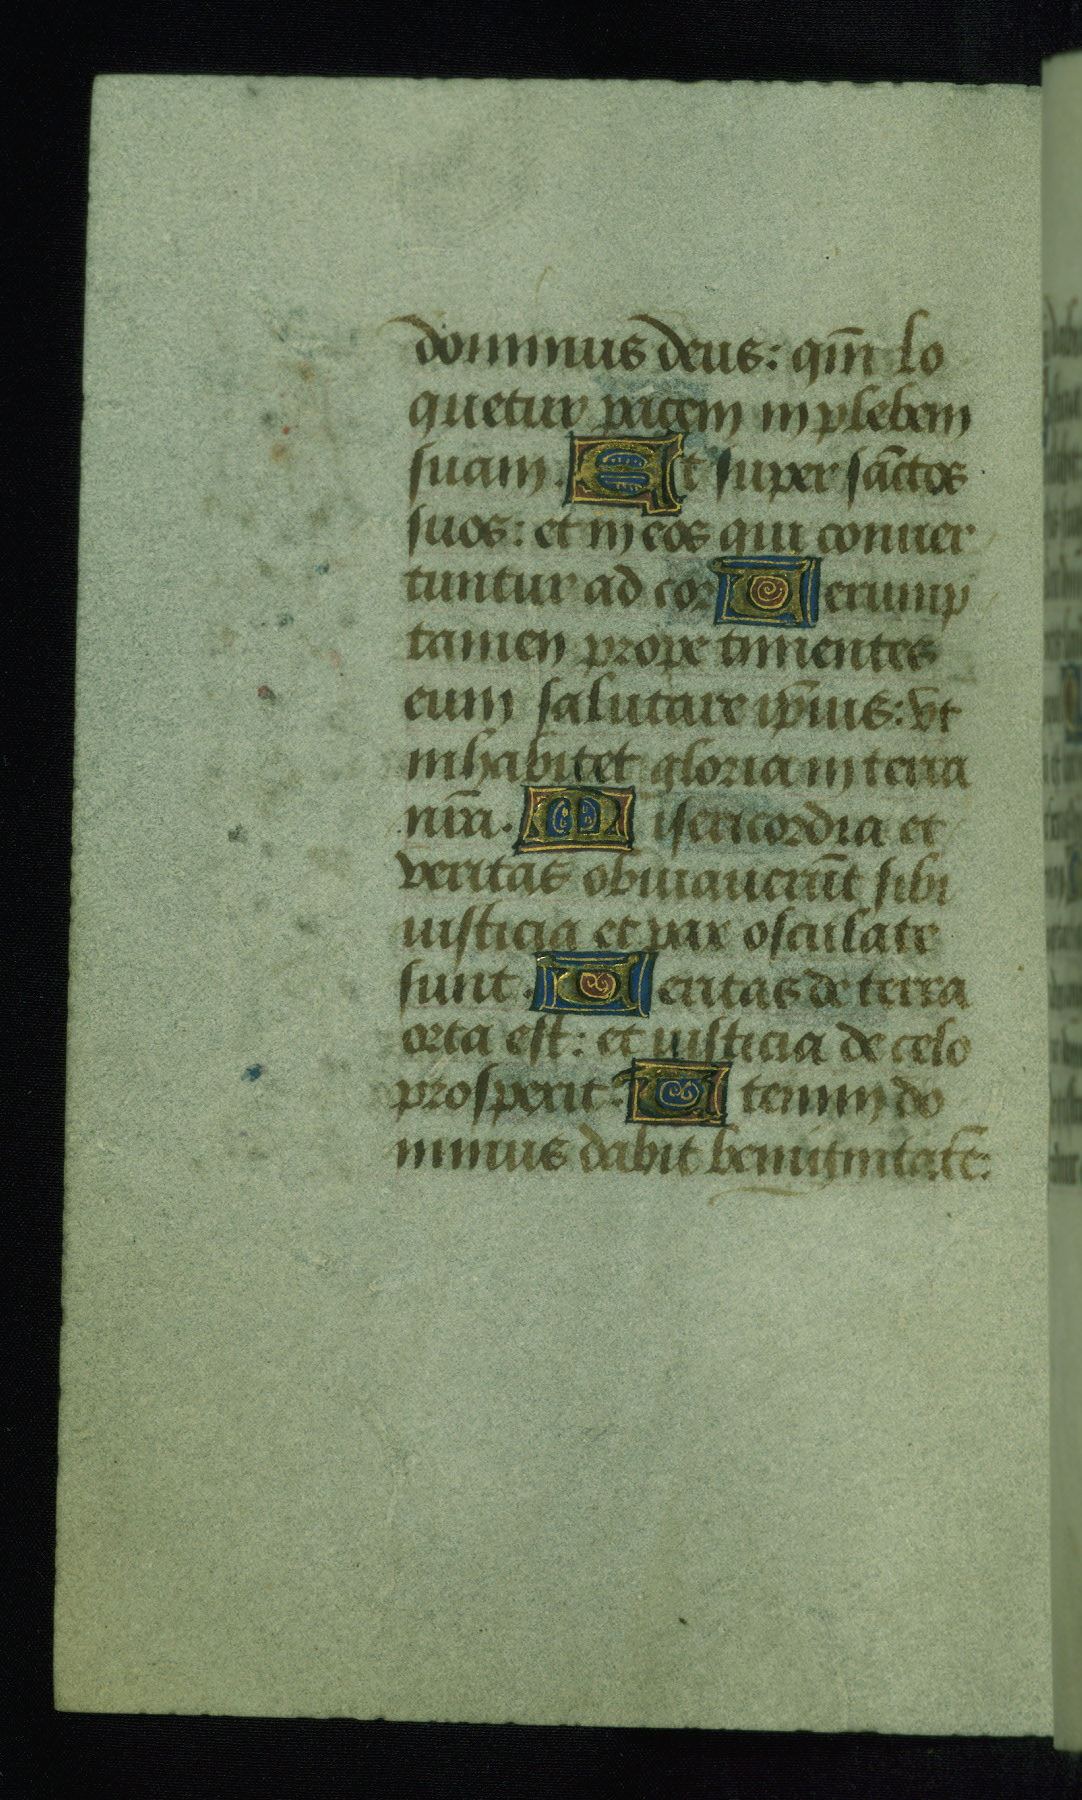 dominus deus: qm̄ lo
quetur pacem in plebem
suam. Et super sāctos
suos: et in eos qui conuer
tuntur ad cor Uerump
tamen prope timentes
eum salutare ip̄ius: vt
inhabitet gloria in terra
nr̄a. Misericordia et
veritas obuiauerūt sibi
iusticia et pax osculate
sunt. Ueritas de terra
orta est: et iusticia de celo
prosperit: Etenim do
minus dabit benignitatē: